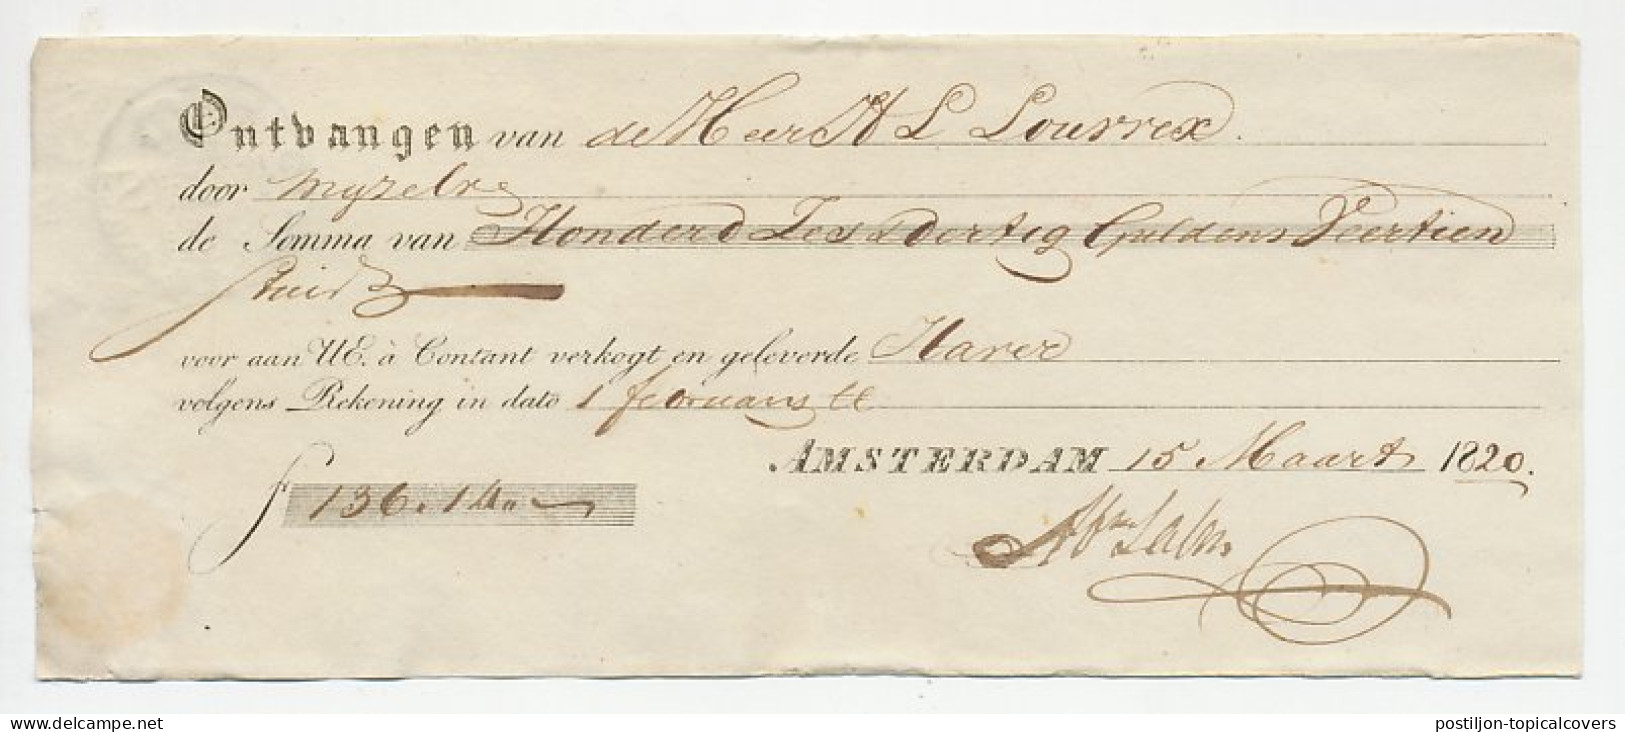 Ontvangen van de Heer H L Lourrex.
door
de Somma van Honderd Zes & Dertig Guldens Veertien
Stuiv
voor aan UE. à Contant verkogt en geleverde Haver
volgens Rekening in dato 1 februarij
AMSTERDAM 15 Maart 1820.
f 136.14.
delcampe.net
postiljon-topicalcovers